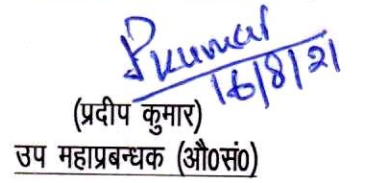 Pkumar
16/8/21
(प्रदीप कुमार)
उप महाप्रबन्धक (औ0सं0)